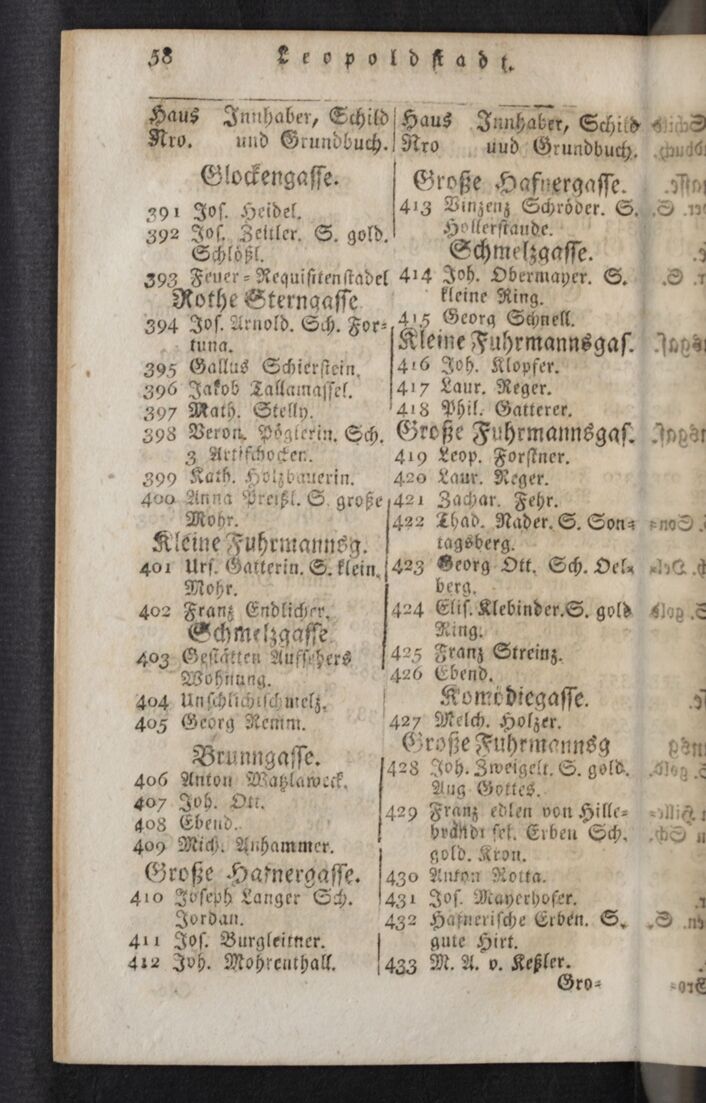 58 Leopoldstadt.
Haus Innhaber, Schild
Nro. und Grundbuch.
Glockengasse.
391 Jos. Heidel.
392 Jos. Zeitler. S. gold.
Schlößl.
393 Feuer-Requisitenstadel
Rothe Sterngasse
394 Jos. Arnold. Sch. For-
tuna.
395 Gallus Schierstein.
396 Jakob Tallamassel.
397 Math. Stelly.
398 Veron. Pöglerin. Sch.
3 Artischocken.
399 Kath. Holzbauerin.
400 Anna Preißl. S. große
Mohr.
Kleine Fuhrmannsg.
401 Urs. Gatterin. S. klein.
Mohr.
402 Franz Endlicher.
Schmelzgasse
403 Gestätten Aufsehers
Wohnung.
404 Unschlichtschmelz.
405 Georg Remm.
Brunngasse.
406 Anton Watzlaweck.
407 Joh. Ott.
408 Ebend.
409 Mich. Anhammer.
Große Hafnergasse.
410 Joseph Langer Sch.
Jordan.
411 Jos. Burgleitner.
412 Joh. Mohrenthall.
Haus Innhaber, Schild
Nro und Grundbuch.
Große Hafnergasse.
413 Vinzenz Schröder. S.
Hollerstaude.
Schmelzgasse.
414 Joh. Obermayer. S.
kleine Ring.
415 Georg Schnell.
Kleine Fuhrmannsgas.
416 Joh. Klopfer.
417 Laur. Reger.
418 Phil. Gatterer.
Große Fuhrmannsgas.
419 Leop. Forstner.
420 Laur. Reger.
421 Zachar. Fehr.
422 Thad. Nader. S. Son-
tagsberg.
423 Georg Ott. Sch. Oel-
berg.
424 Elis. Klebinder. S. gold
Ring.
425 Franz Streinz.
426 Ebend.
Komödiegasse.
427 Melch. Holzer.
Große Fuhrmannsg
428 Joh. Zweigelt. S. gold.
Aug Gottes.
429 Franz edlen von Hille-
brandt sel. Erben Sch.
gold. Kron.
430 Anton Rotta.
431 Jos. Mayerhofer.
432 Hafnerische Erben. S.
gute Hirt.
433 M. A. v. Keßler.
Gro-